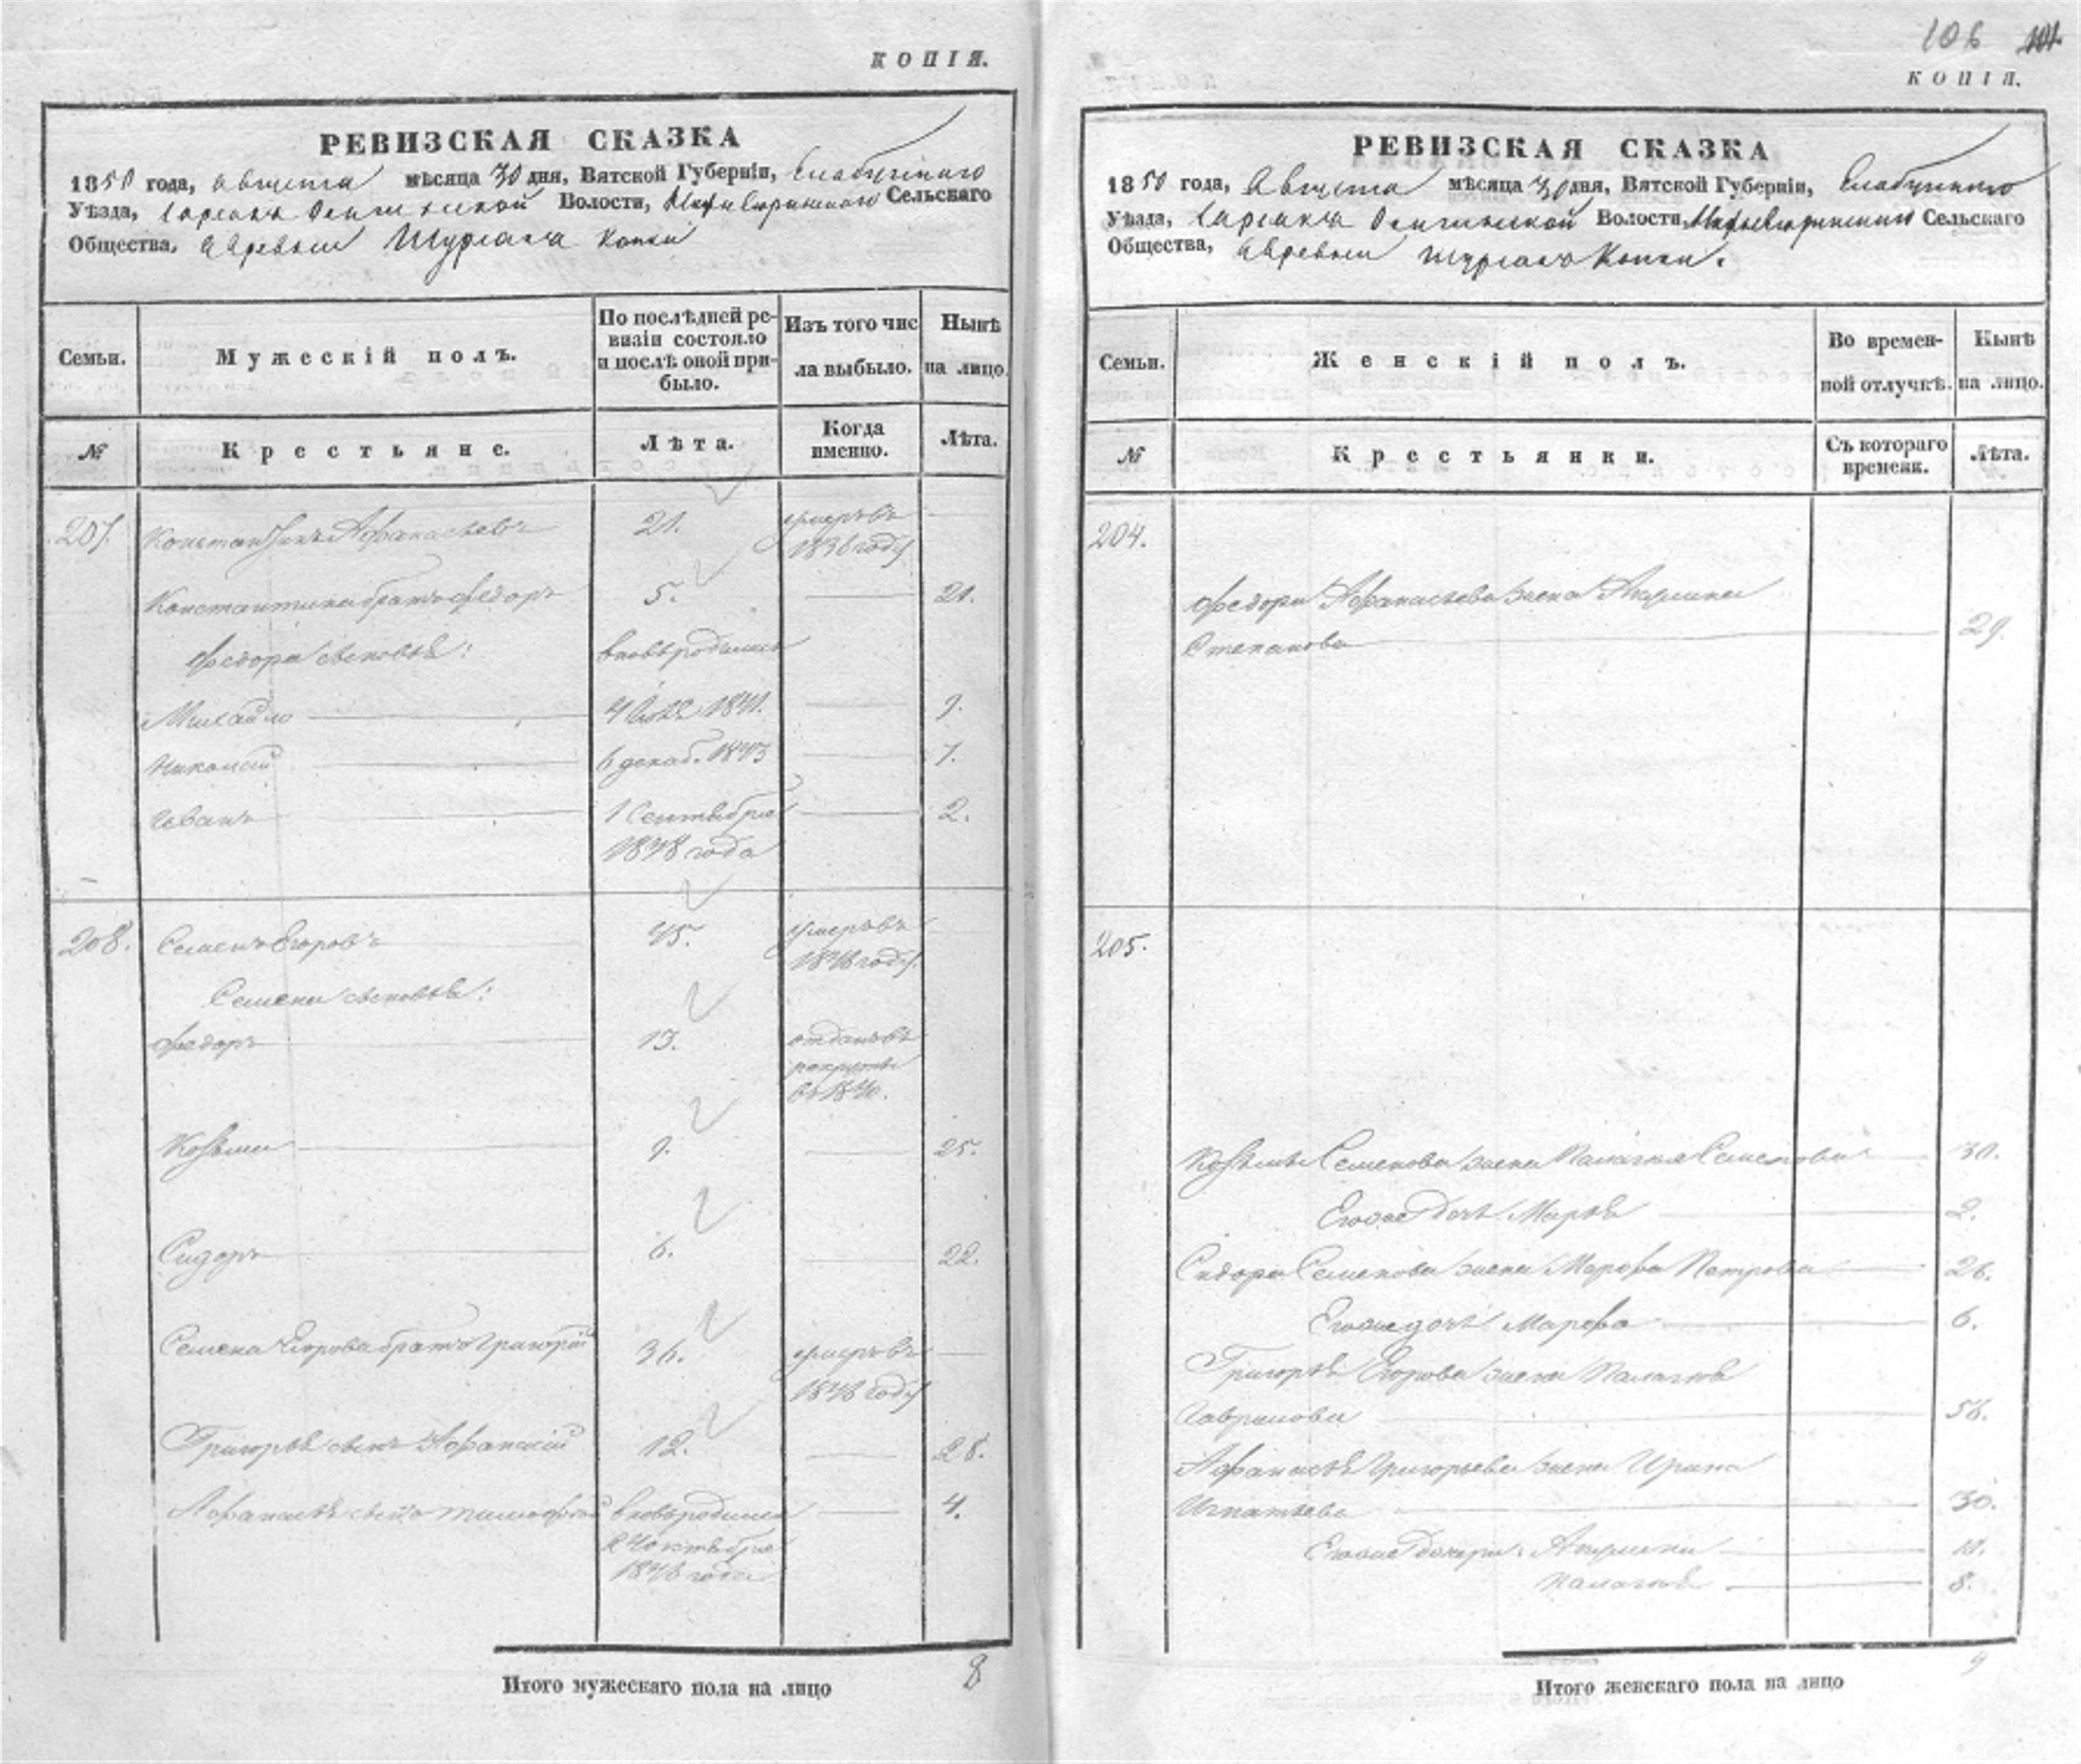 КОПІЯ.
РЕВИЗСКАЯ СКАЗКА
1850 года, Августа мѣсяца 30 дня, Вятской Губерніи, Елабужского
Уѣзда, Волости, Сельскаго
Общества, деревни
Семьи.
Мужескій полъ.
По послѣдней ре-
визіи состояло
и послѣ оной при-
было.
Изъ того чис
ла выбыло.
Нынѣ
на лицо.
№
Крестьяне.
Лѣта.
Когда
именно.
Лѣта.
207. Константинъ Афанасьевъ 21. умеръ въ
1836 году
Константина братъ Федоръ 5. 21.
Федора сыновья: вновь родились
Михайло 1841. 9.
Николай 6 декаб. 1843 7.
Иванъ 1 Сентября 2.
1848 года
208. Семенъ Егоровъ 45. умеръ въ
1846 году
Семена сыновья:
Федоръ 13. отданъ въ
рекруты
въ 1840.
Козьма 9. 25.
Сидоръ 6. 22.
Семена Егорова братъ Григорій 36. умеръ въ
1846 году
Григорья сынъ Афанасій 12. 28.
Афанасья сынъ Тимофей вновь родился 4.
октября
1846 года
Итого мужескаго пола на лицо 8
106 101
КОПІЯ.
РЕВИЗСКАЯ СКАЗКА
1850 года, Августа мѣсяца 30 дня, Вятской Губерніи, Елабужского
Уѣзда, Волости, Сельскаго
Общества, деревни
Семьи.
Женскій полъ.
Во времен-
ной отлучкѣ.
Нынѣ
на лицо.
№
Крестьянки.
Съ котораго
времени.
Лѣта.
204.
Федора Афанасьева жена Акулина
Степанова 29.
205.
Козьмы Семенова жена Палагея Семенова 30.
Егоже дочь Марья 2.
Сидора Семенова жена Марфа Петрова 26.
Егоже дочь Марфа 6.
Григорья Егорова жена Палагея
Гаврилова 56.
Афанасья Григорьева жена Ирина
Игнатьева 30.
Егоже дочери: Акулина 11.
Палагея 8.
Итого женскаго пола на лицо 9